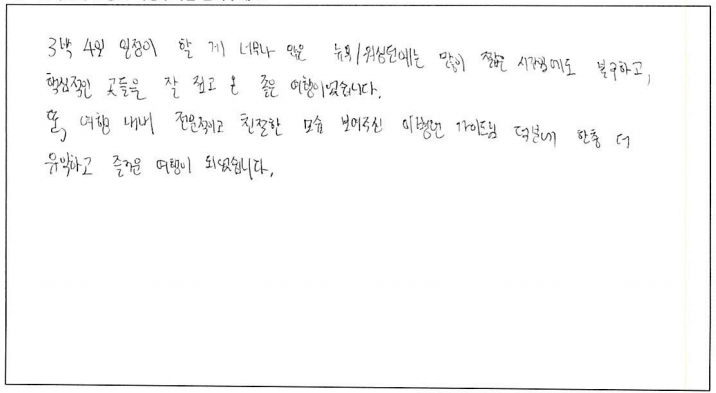 3박 4일 일정이 할 게 너무나 많은 뉴욕/워싱턴에는 많이 짧은 시간임에도 불구하고,
핵심적인 곳들을 잘 찝고 온 좋은 여행이었습니다.
또, 여행 내내 전문적이고 친절한 모습 보여주신 가이드님 덕분에 한층 더
유익하고 즐거운 여행이 되었습니다.